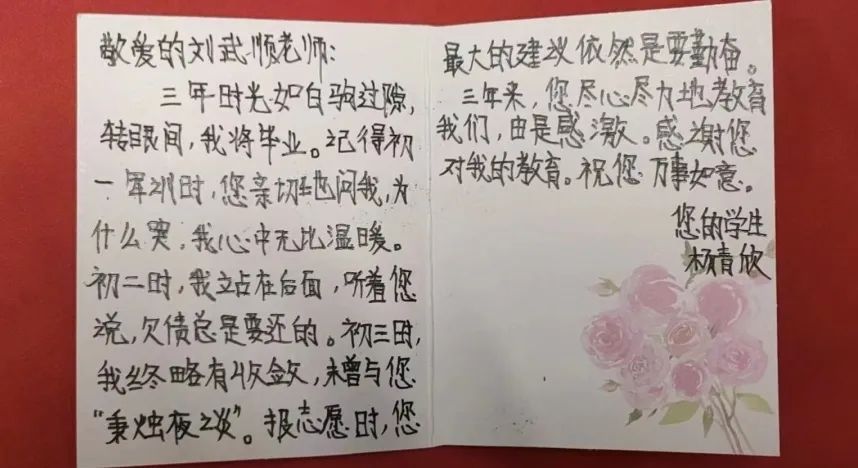 敬爱的刘武顺老师：
三年时光如白驹过隙，
转眼间，我将毕业。记得初
一军训时，您亲切地问我，为
什么哭，我心中无比温暖。
初二时，我立站在后面，听着您
说，欠债总是要还的。初三时，
我终略有收敛，未曾与您
“秉烛夜谈”。报志愿时，您
最大的建议依然是要勤奋。
三年来，您尽心尽力地教育
我们，由是感激。感谢您
对我的教育。祝您万事如意。
您的学生
杨青欣